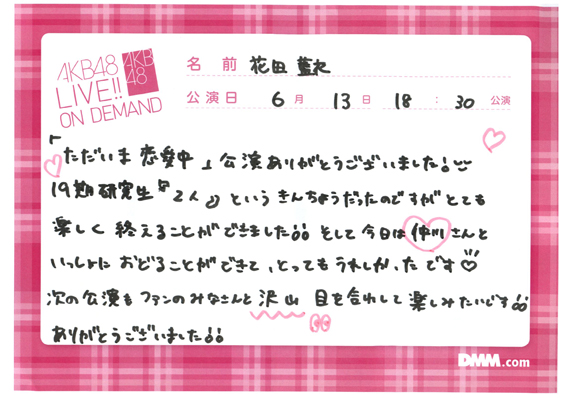 AKB48
LIVE!!
ON DEMAND
AKB
48
名前 花田 藍衣
公演日 6月 13日 18:30 公演
「ただいま恋愛中」公演ありがとうございました!
19期研究生『2人』というきんちょうだったのですがとても
楽しく終えることができました!! そして今日は仲川さんと
いっしょにおどることができて、とってもうれしかったです♡
次の公演もファンのみなさんと沢山目を合わして楽しみたいです!!
ありがとうございました!!
DMM.com